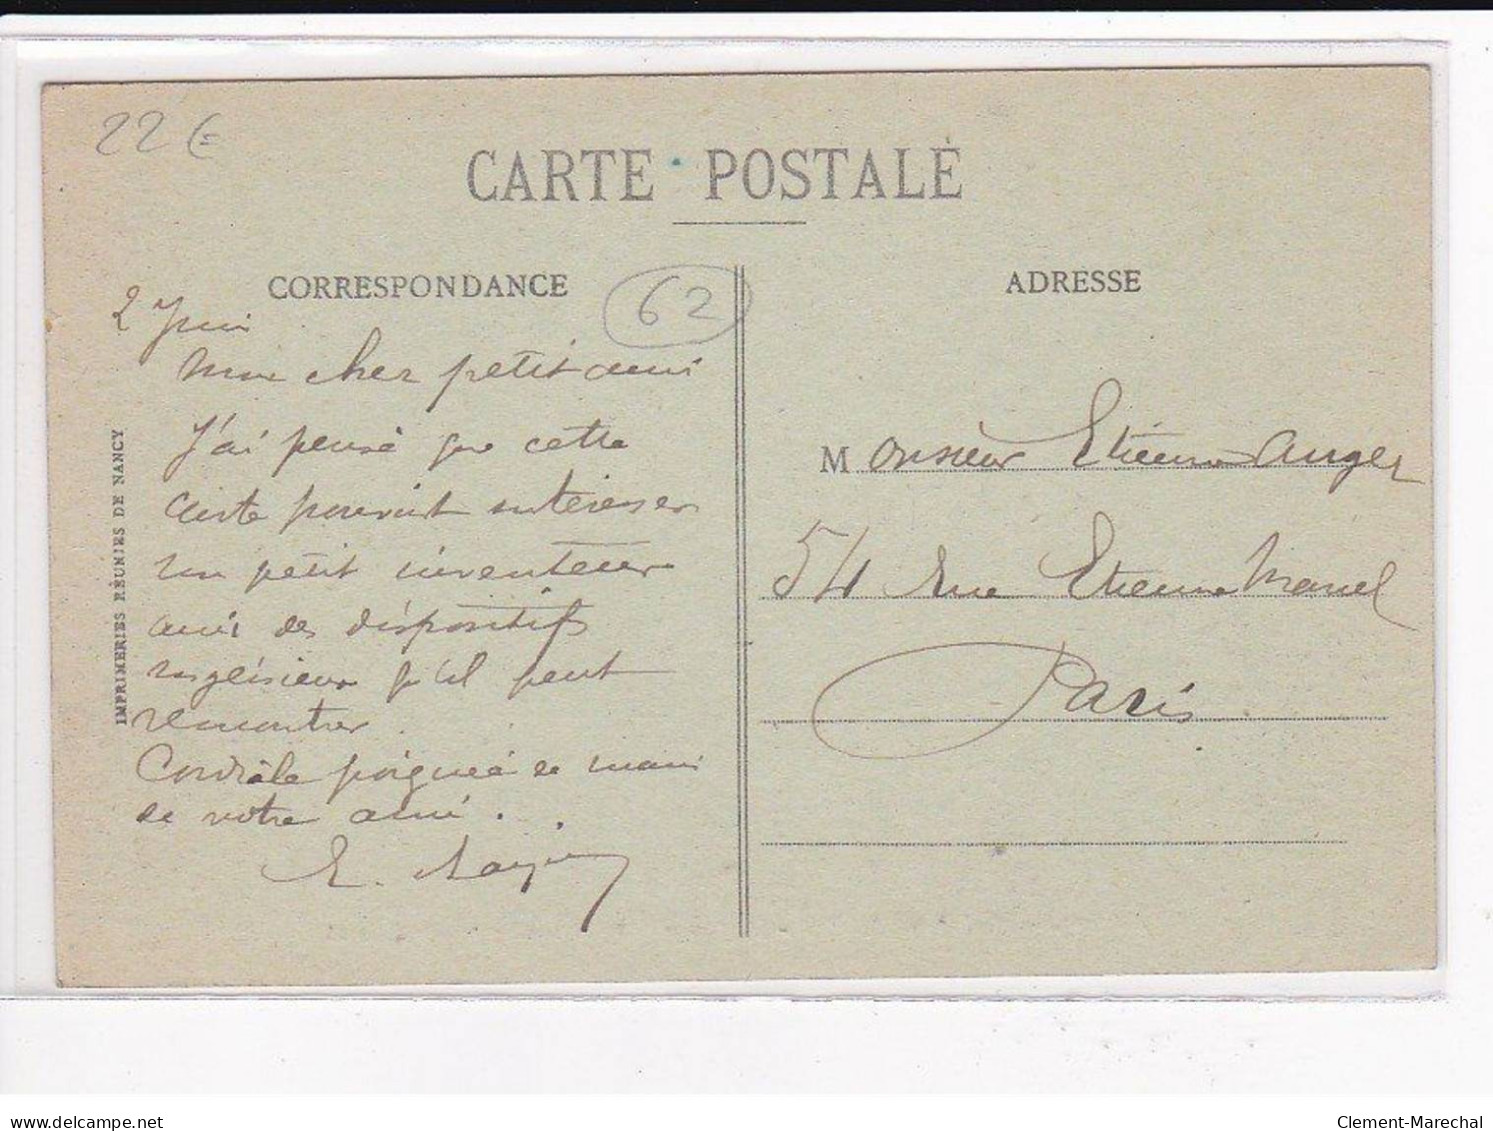 22 €
CARTE POSTALE
CORRESPONDANCE
62
ADRESSE
2 Juin
Mon cher petit ami
J'ai pensé que cette
carte pourrait intéresser
un petit inventeur
ami des dispositifs
ingénieux qu'il peut
rencontrer.
Cordiale poignée de main
de votre ami.
IMPRIMERIES RÉUNIES DE NANCY
Monsieur Etienne Auger
54 rue Etienne Marcel
Paris
delcampe.net
Clement-Marechal